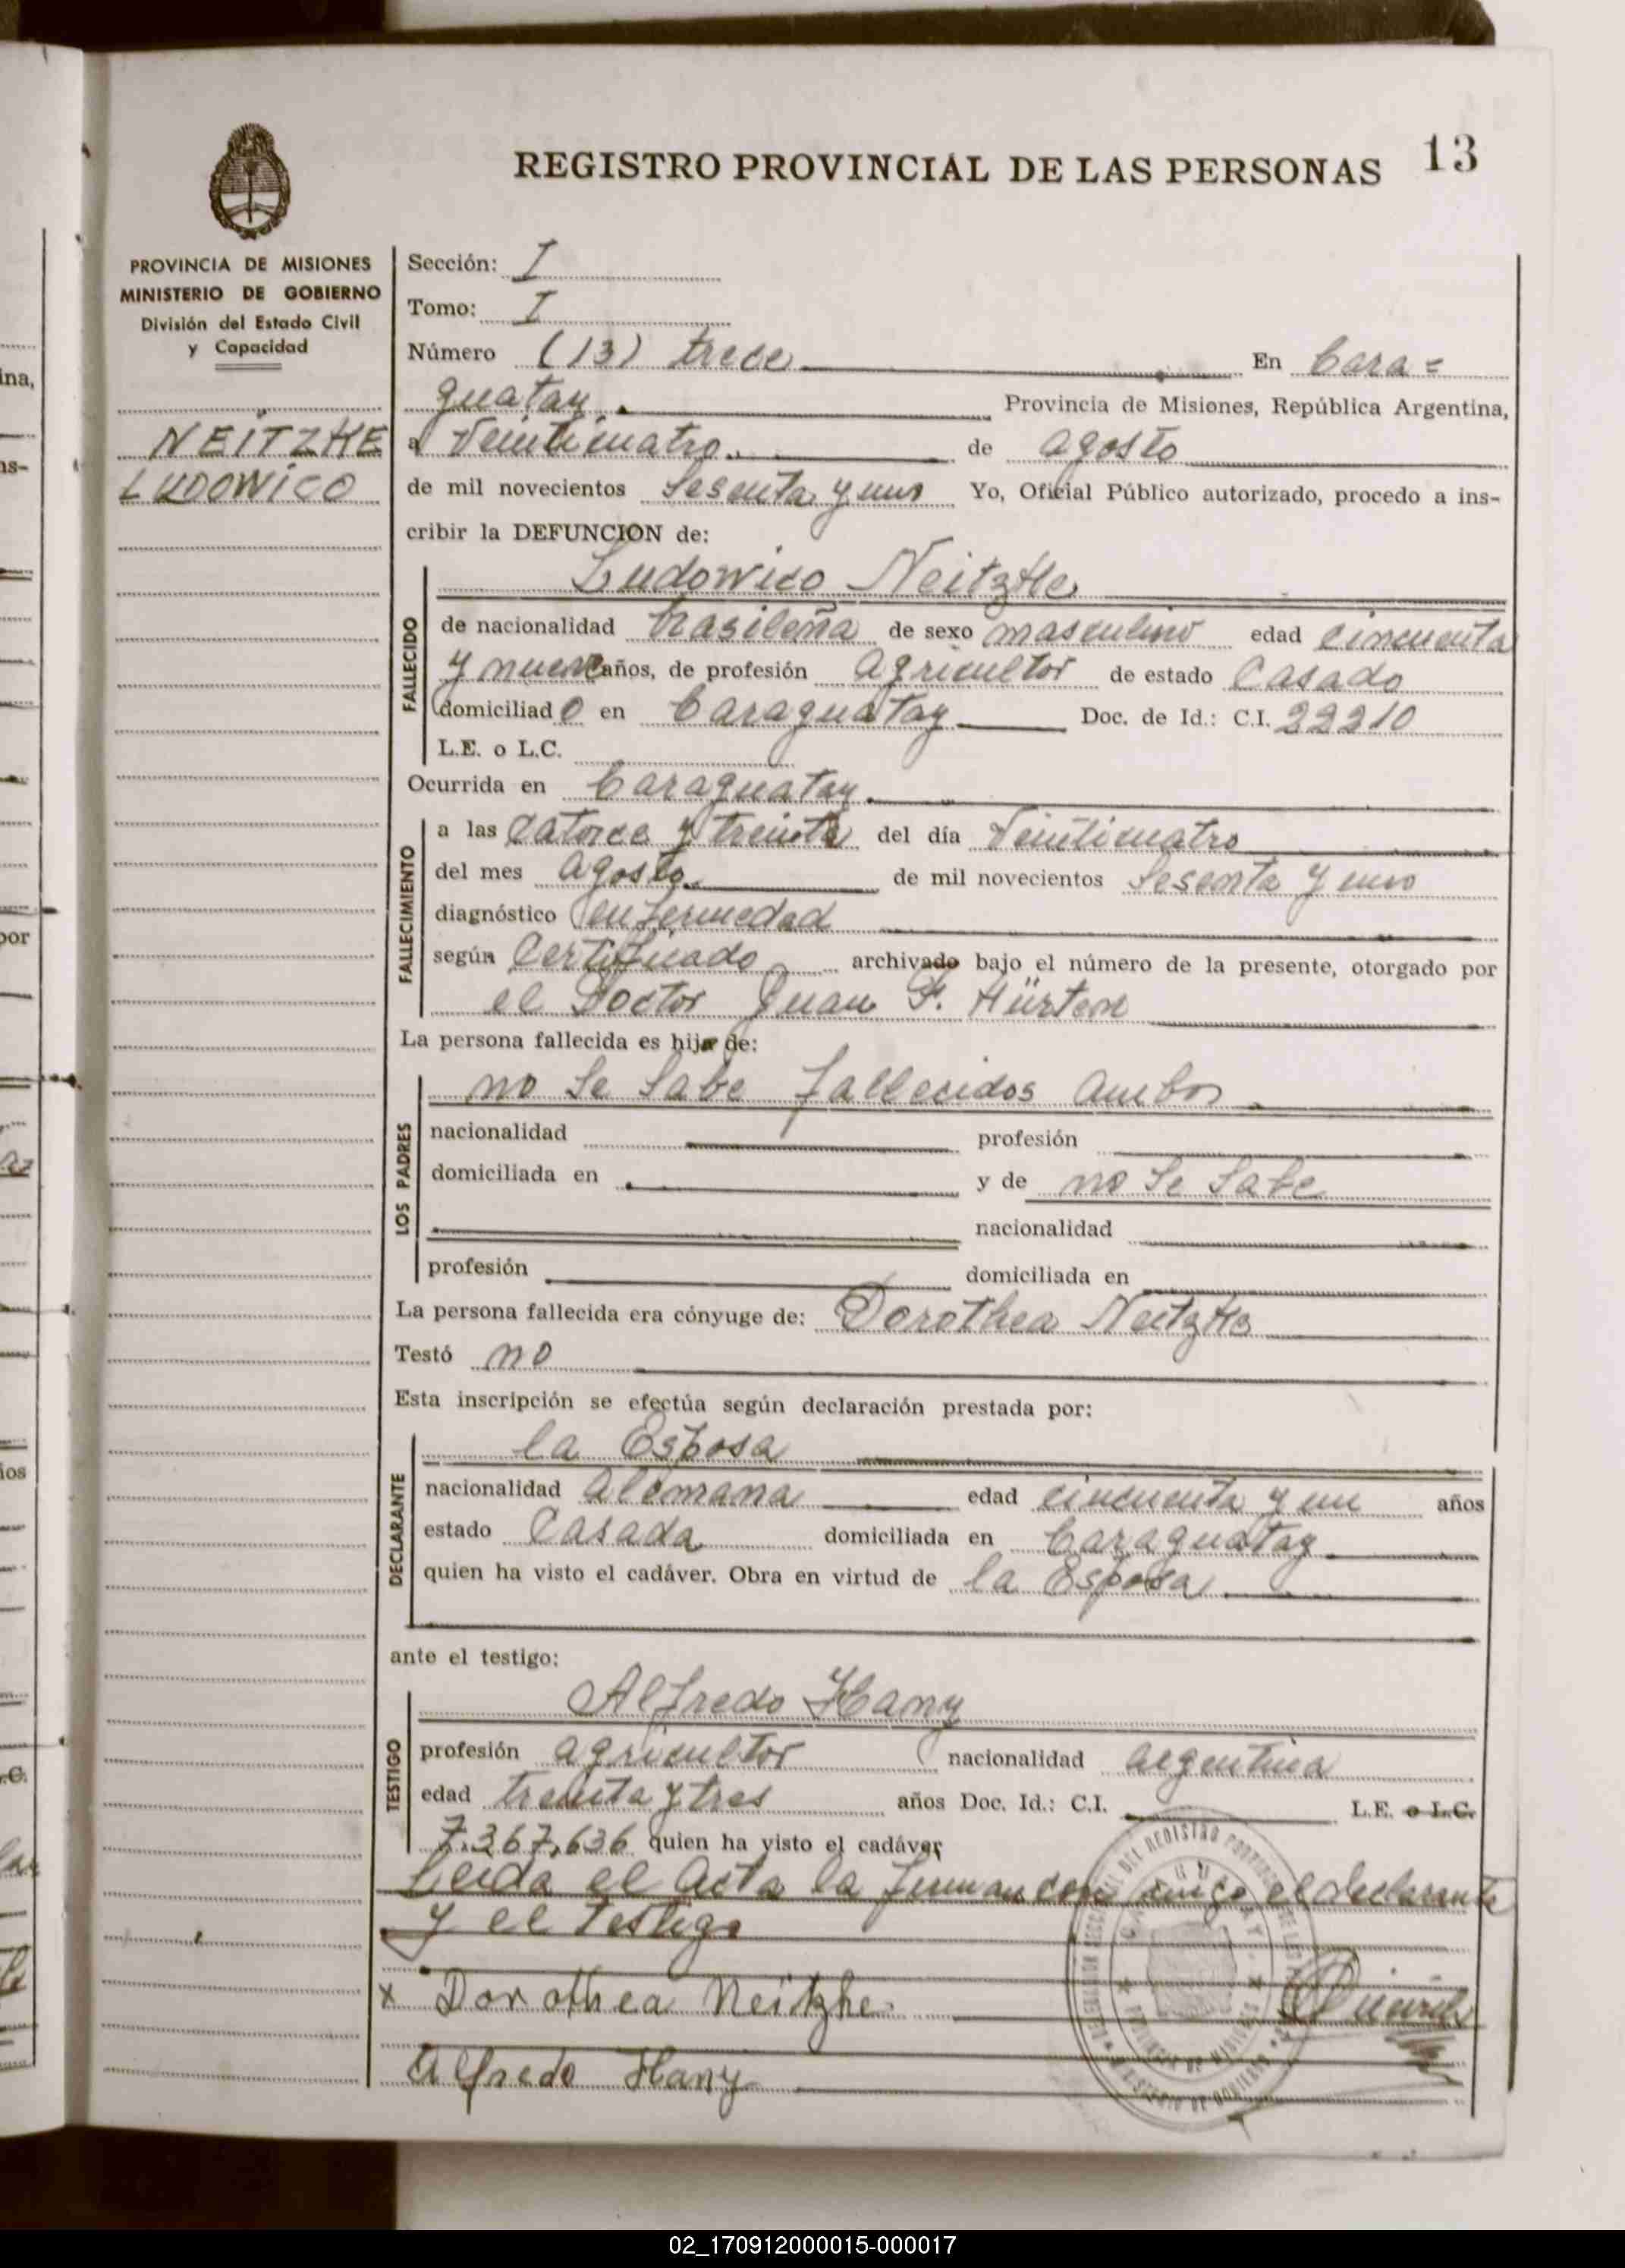 REGISTRO PROVINCIAL DE LAS PERSONAS 13
PROVINCIA DE MISIONES
MINISTERIO DE GOBIERNO
División del Estado Civil
y Capacidad
NEITZHE
LUDOWICO
Sección: I
Tomo: I
Número (13) trece En Cara=
guatay. Provincia de Misiones, República Argentina,
a Veinticuatro de agosto
de mil novecientos Sesenta y uno Yo, Oficial Público autorizado, procedo a ins-
cribir la DEFUNCION de:
Ludowico Neitzhe
FALLECIDO
de nacionalidad brasileña de sexo masculino edad cincuenta
y nueve años, de profesión agricultor de estado Casado
domiciliado en Caraguatay Doc. de Id.: C.I. 22210
L.E. o L.C.
Ocurrida en Caraguatay.
FALLECIMIENTO
a las Catorce y treinta del día Veinticuatro
del mes agosto de mil novecientos Sesenta y uno
diagnóstico enfermedad
según Certificado archivado bajo el número de la presente, otorgado por
el Doctor Juan F. Hürten
La persona fallecida es hijo de:
LOS PADRES
no Se Sabe fallecidos ambos
nacionalidad profesión
domiciliada en y de no Se Sabe
nacionalidad
profesión domiciliada en
La persona fallecida era cónyuge de: Dorothea Neitzhe
Testó no
Esta inscripción se efectúa según declaración prestada por:
DECLARANTE
la Esposa
nacionalidad alemana edad cincuenta y un años
estado Casada domiciliada en Caraguatay
quien ha visto el cadáver. Obra en virtud de la Esposa
ante el testigo:
TESTIGO
Alfredo Hany
profesión agricultor nacionalidad argentina
edad treinta y tres años Doc. Id.: C.I. L.E. o L.C.
7.367,636 quien ha visto el cadáver
Leida el acta la firman con migo el declarante
y el testigo
x Dorothea Neitzhe
Alfredo Hany
02_170912000015-000017